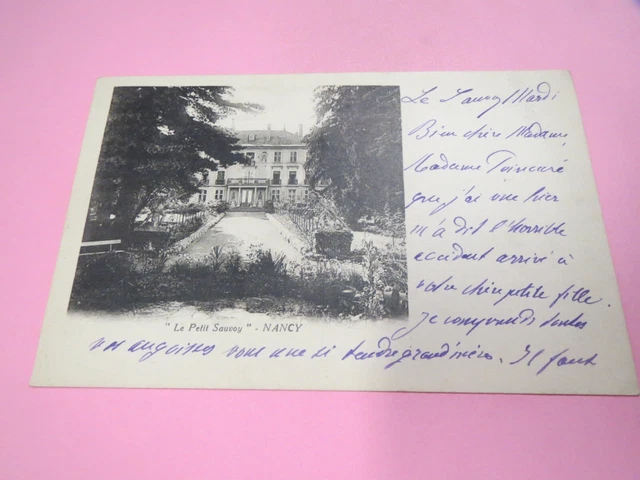 "Le Petit Sauvoy" - NANCY
Le Sauvoy Mardi
Bien chère Madame,
Madame Poincaré
que j'ai vue hier
m'a dit l'horrible
accident arrivé à
votre chère petite fille.
Je comprends toutes
vos angoisses vous une si tendre grand'mère. Il faut